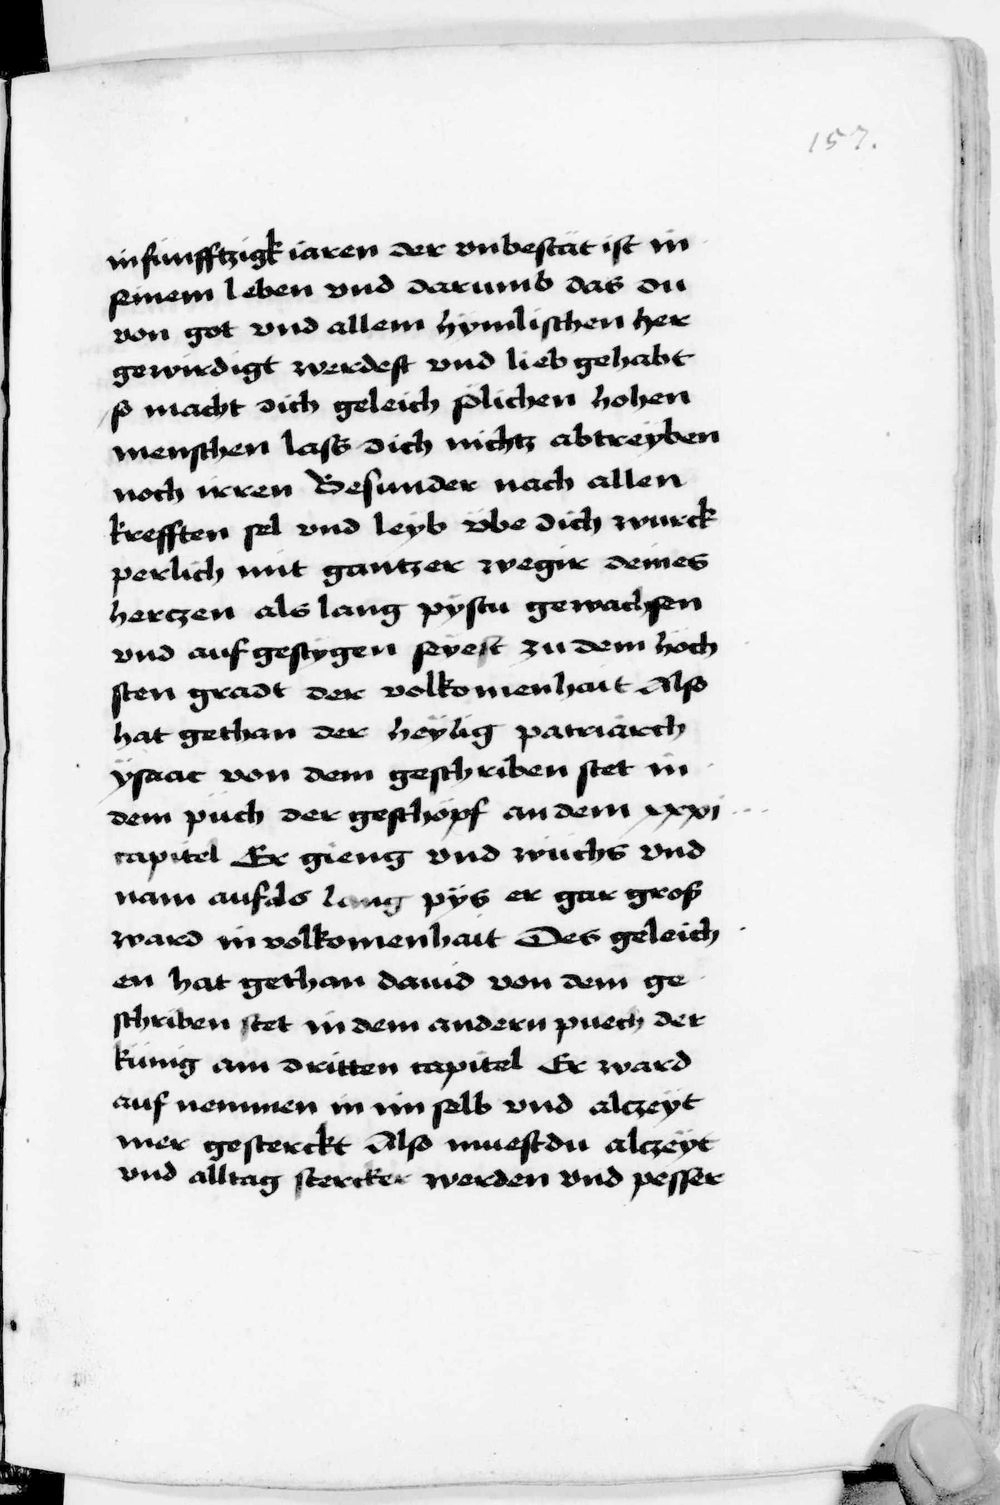 157.
in fünfftzigk iaren der vnbestät ist in
seinem leben vnd darumb das du
von got vnd allem hymlischen her
gewirdigt werdest vnd lieb gehabt
so macht dich geleich sölichen hohen
menschen lass dich nichtz abtreyben
noch irren Besunder nach allen
krefften sel vnd leyb vbe dich wurck
perlich mit gantzer wegir deines
herczen als lang pystu gewachsen
vnd auf gestygen seyest zu dem höch
sten gradt der volkomenhait Also
hat gethan der heylig patriarch
ysaac von dem geschriben stet in
dem püch der geschöpf an dem xxxi
capitel Er gieng vnd wüchs vnd
nam auf als lang pys er gar groß
ward in volkomenhait Des geleich
en hat gethan dauid von dem ge
schriben stet in dem andern puech der
künig am dritten capitel Er ward
auf nemmen in im selb vnd alczeyt
mer gesterckt Also muestdu alczeyt
vnd alltag stercker werden vnd pesser